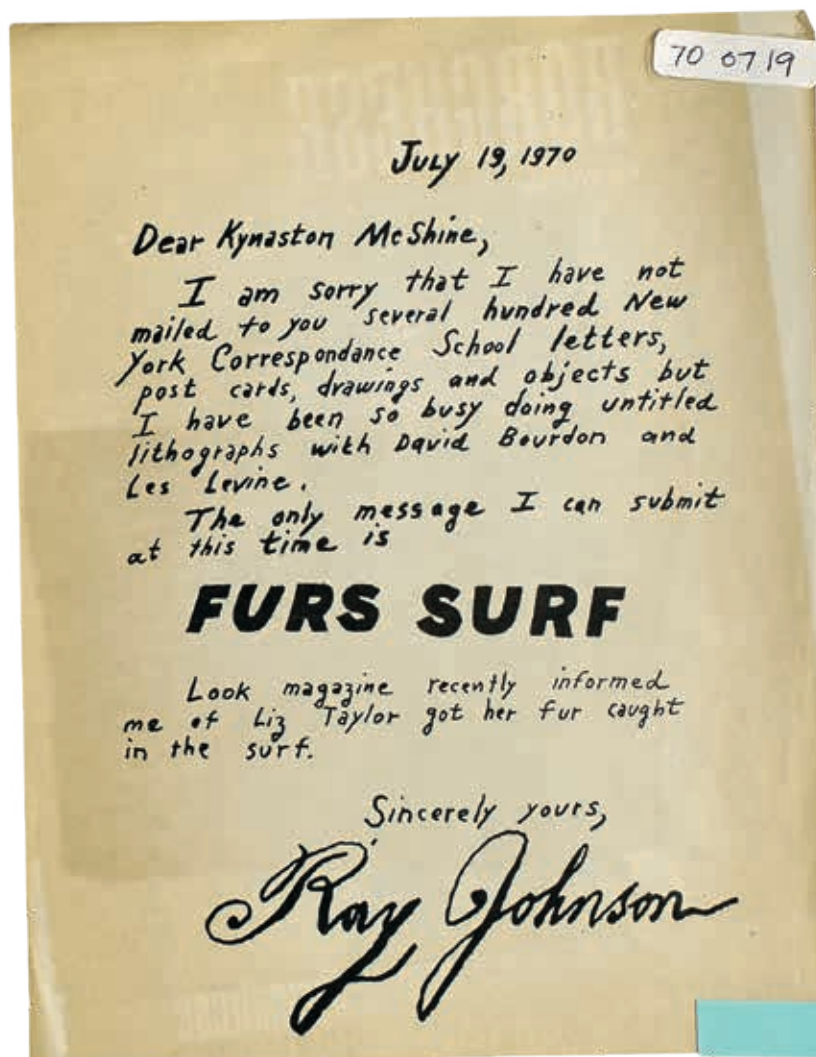 70 07 19
July 19, 1970
Dear Kynaston McShine,
I am sorry that I have not
mailed to you several hundred New
York Correspondance School letters,
post cards, drawings and objects but
I have been so busy doing untitled
lithographs with David Bourdon and
Les Levine.
The only message I can submit
at this time is
FURS SURF
Look magazine recently informed
me of Liz Taylor got her fur caught
in the surf.
Sincerely yours,
Ray Johnson